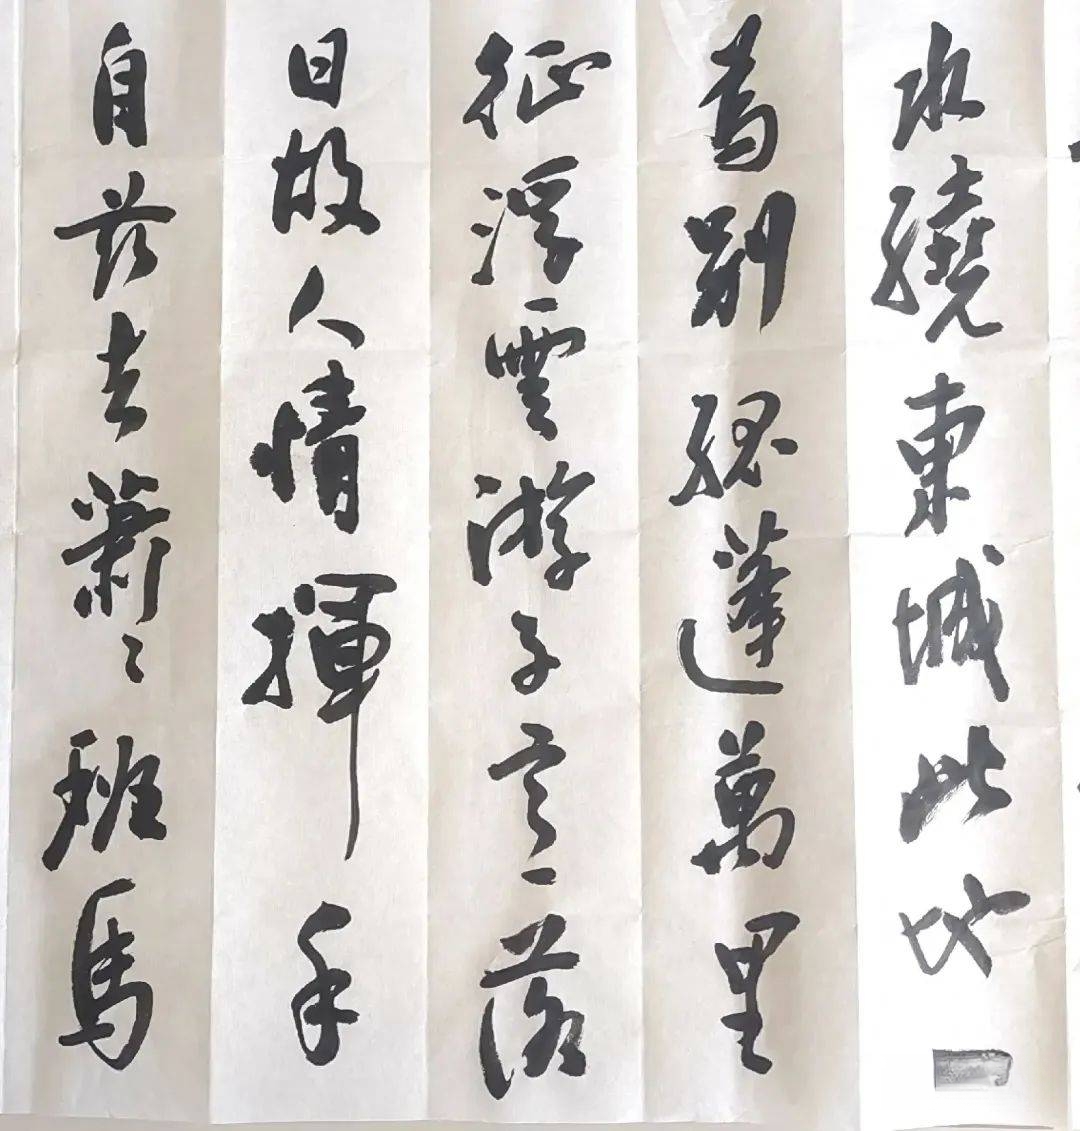 水繞東城此地一
為別孤蓬萬里
征浮雲游子意落
日故人情揮手
自茲去蕭々班馬